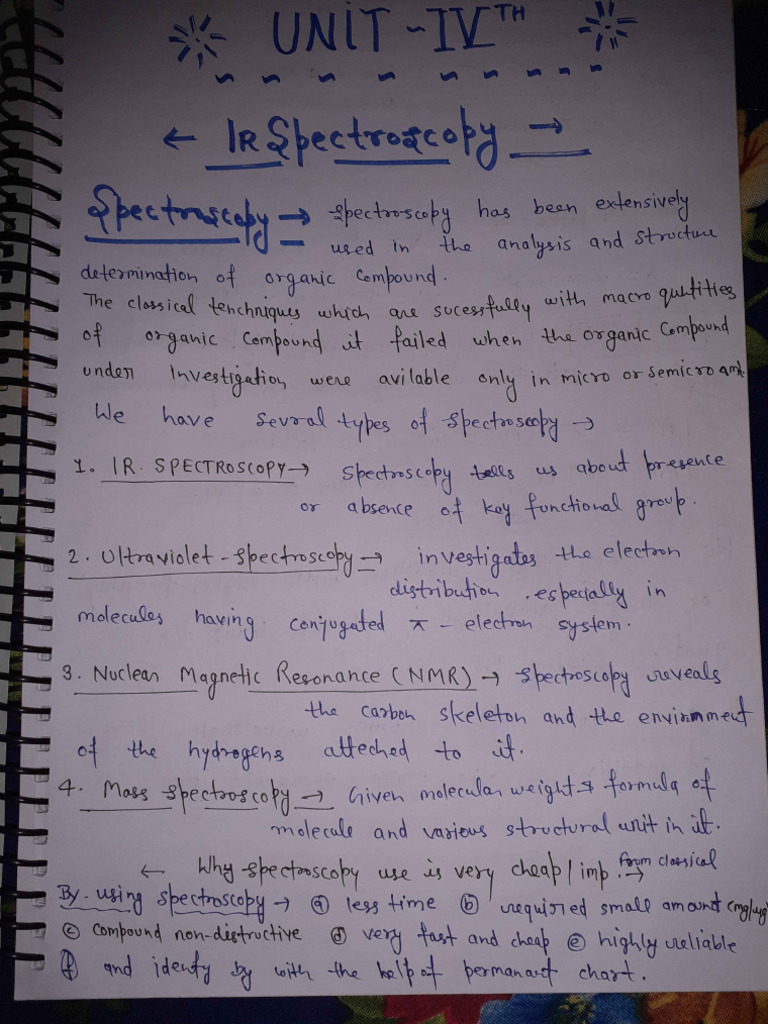 UNIT-IVTH
← IR Spectroscopy →
Spectroscopy → Spectroscopy has been extensively
used in the analysis and structure
determination of organic compound.
The classical tenchniques which are sucessfully with macro quntities
of organic compound it failed when the organic compound
under Investigation were avilable only in micro or semicro amt.
We have sevral types of spectroscopy →
1. IR. SPECTROSCOPY → Spectroscopy tells us about presence
or absence of key functional group.
2. Ultraviolet-spectroscopy → investigates the electron
distribution, especially in
molecules having conjugated π - electron system.
3. Nuclear Magnetic Resonance (NMR) → Spectroscopy reveals
the carbon skeleton and the envirnment
of the hydrogens atteched to it.
4. Mass spectroscopy → Given molecular weight & formula of
molecule and various structural unit in it.
← Why spectroscopy use is very cheap/imp. from classical →
By. using spectroscopy → ⓐ less time ⓑ required small amount (mg/ug)
ⓒ compound non-distructive ⓓ very fast and cheap ⓔ highly reliable
ⓕ and identy by with the help of permanant chart.